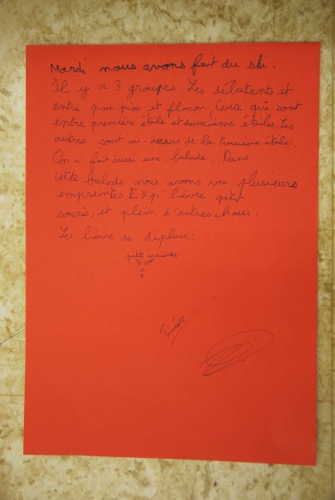 Mardi nous avons fait du ski.
Il y a 3 groupes Les débutants et
entre piou piou et flocon, Ceux qui sont
entre première étoile et deuxième étoiles. Les
autres sont au-dessus de la troisième étoile.
On a fait aussi une balade. Dans
cette balade nous avons vu plusieurs
empreintes Exp: lièvre, petit
souris, et plein d'autres choses.
Le lièvre se déplace:
petit